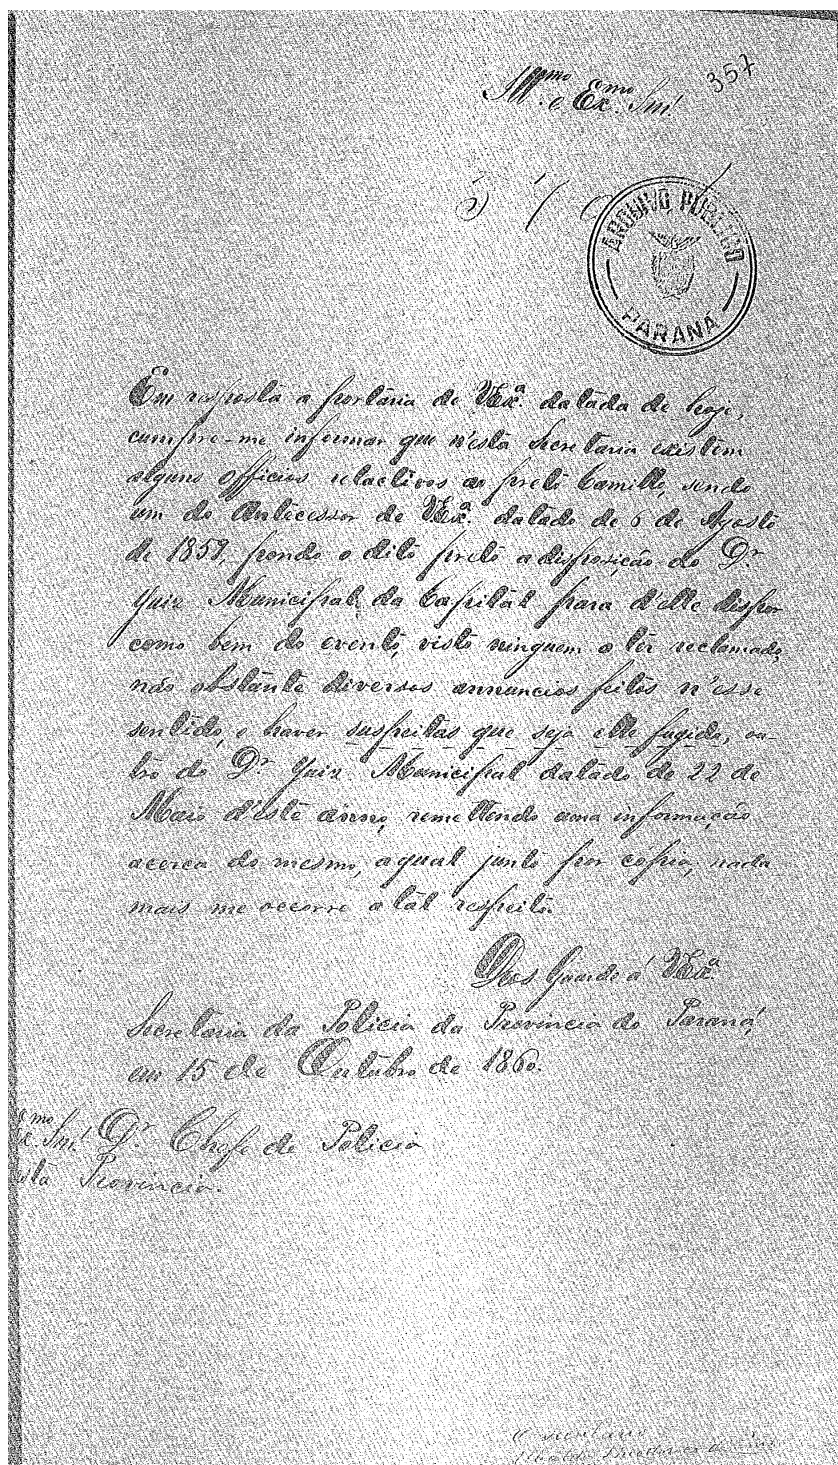 357
Ill.mo e Ex.mo Snr.
ARQUIVO PÚBLICO
PARANÁ
Em resposta a portaria de VEx.a datada de hoje,
cumpre-me informar que n'esta Secretaria existem
alguns officios relactivos ao preto Camillo, sendo
um do Antecessor de VEx.a datado de 6 de Agosto
de 1859, pondo o dito preto a disposição do Dr.
Juiz Municipal da Capital para d'elle dispor
como bem do evento, visto ninguem o ter reclamado,
não obstante diversos annuncios feitos n'esse
sentido, e haver suspeitas que seja elle fugido, ou-
tro do Dr. Juiz Municipal datado de 22 de
Maio d'este anno, remettendo uma informação
acerca do mesmo, a qual junto por cópia, nada
mais me occorre a tal respeito.
Deos Guarde a VEx.a
Secretaria da Policia da Provincia do Paraná,
em 15 de Outubro de 1860.
Snr. Dr. Chefe de Policia
Provincia.
O secretario